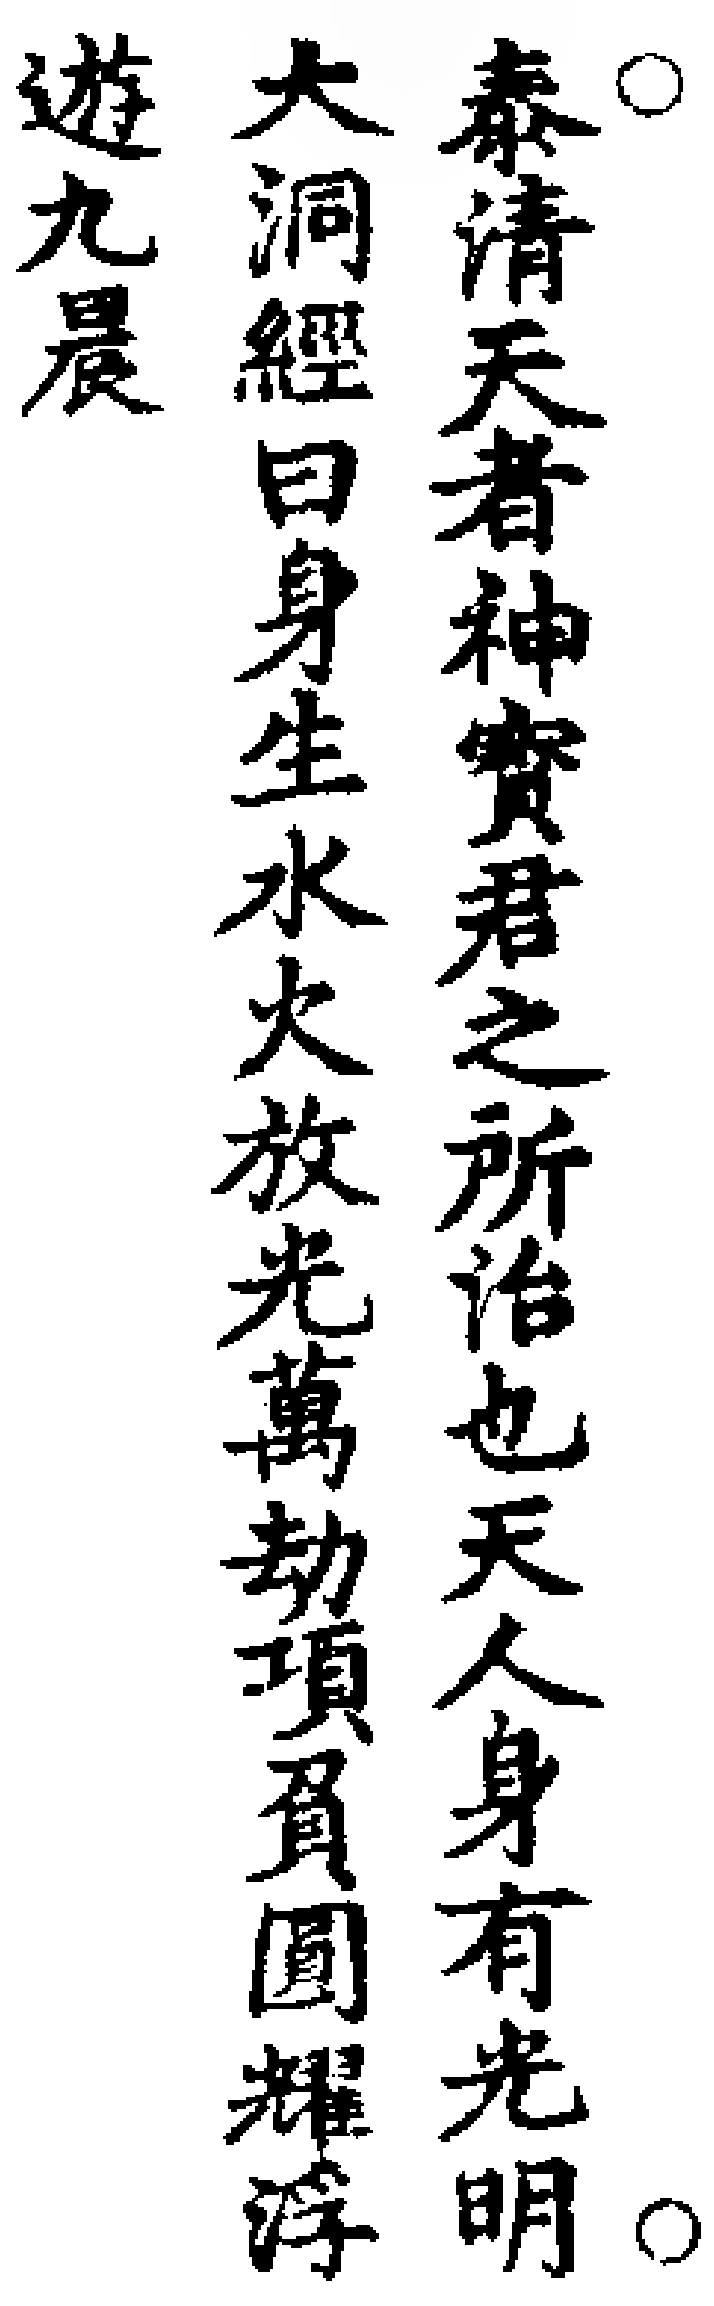 ○泰清天者神寶君之所治也天人身有光明○
大洞經曰身生水火放光萬劫項負圓耀浮
遊九晨